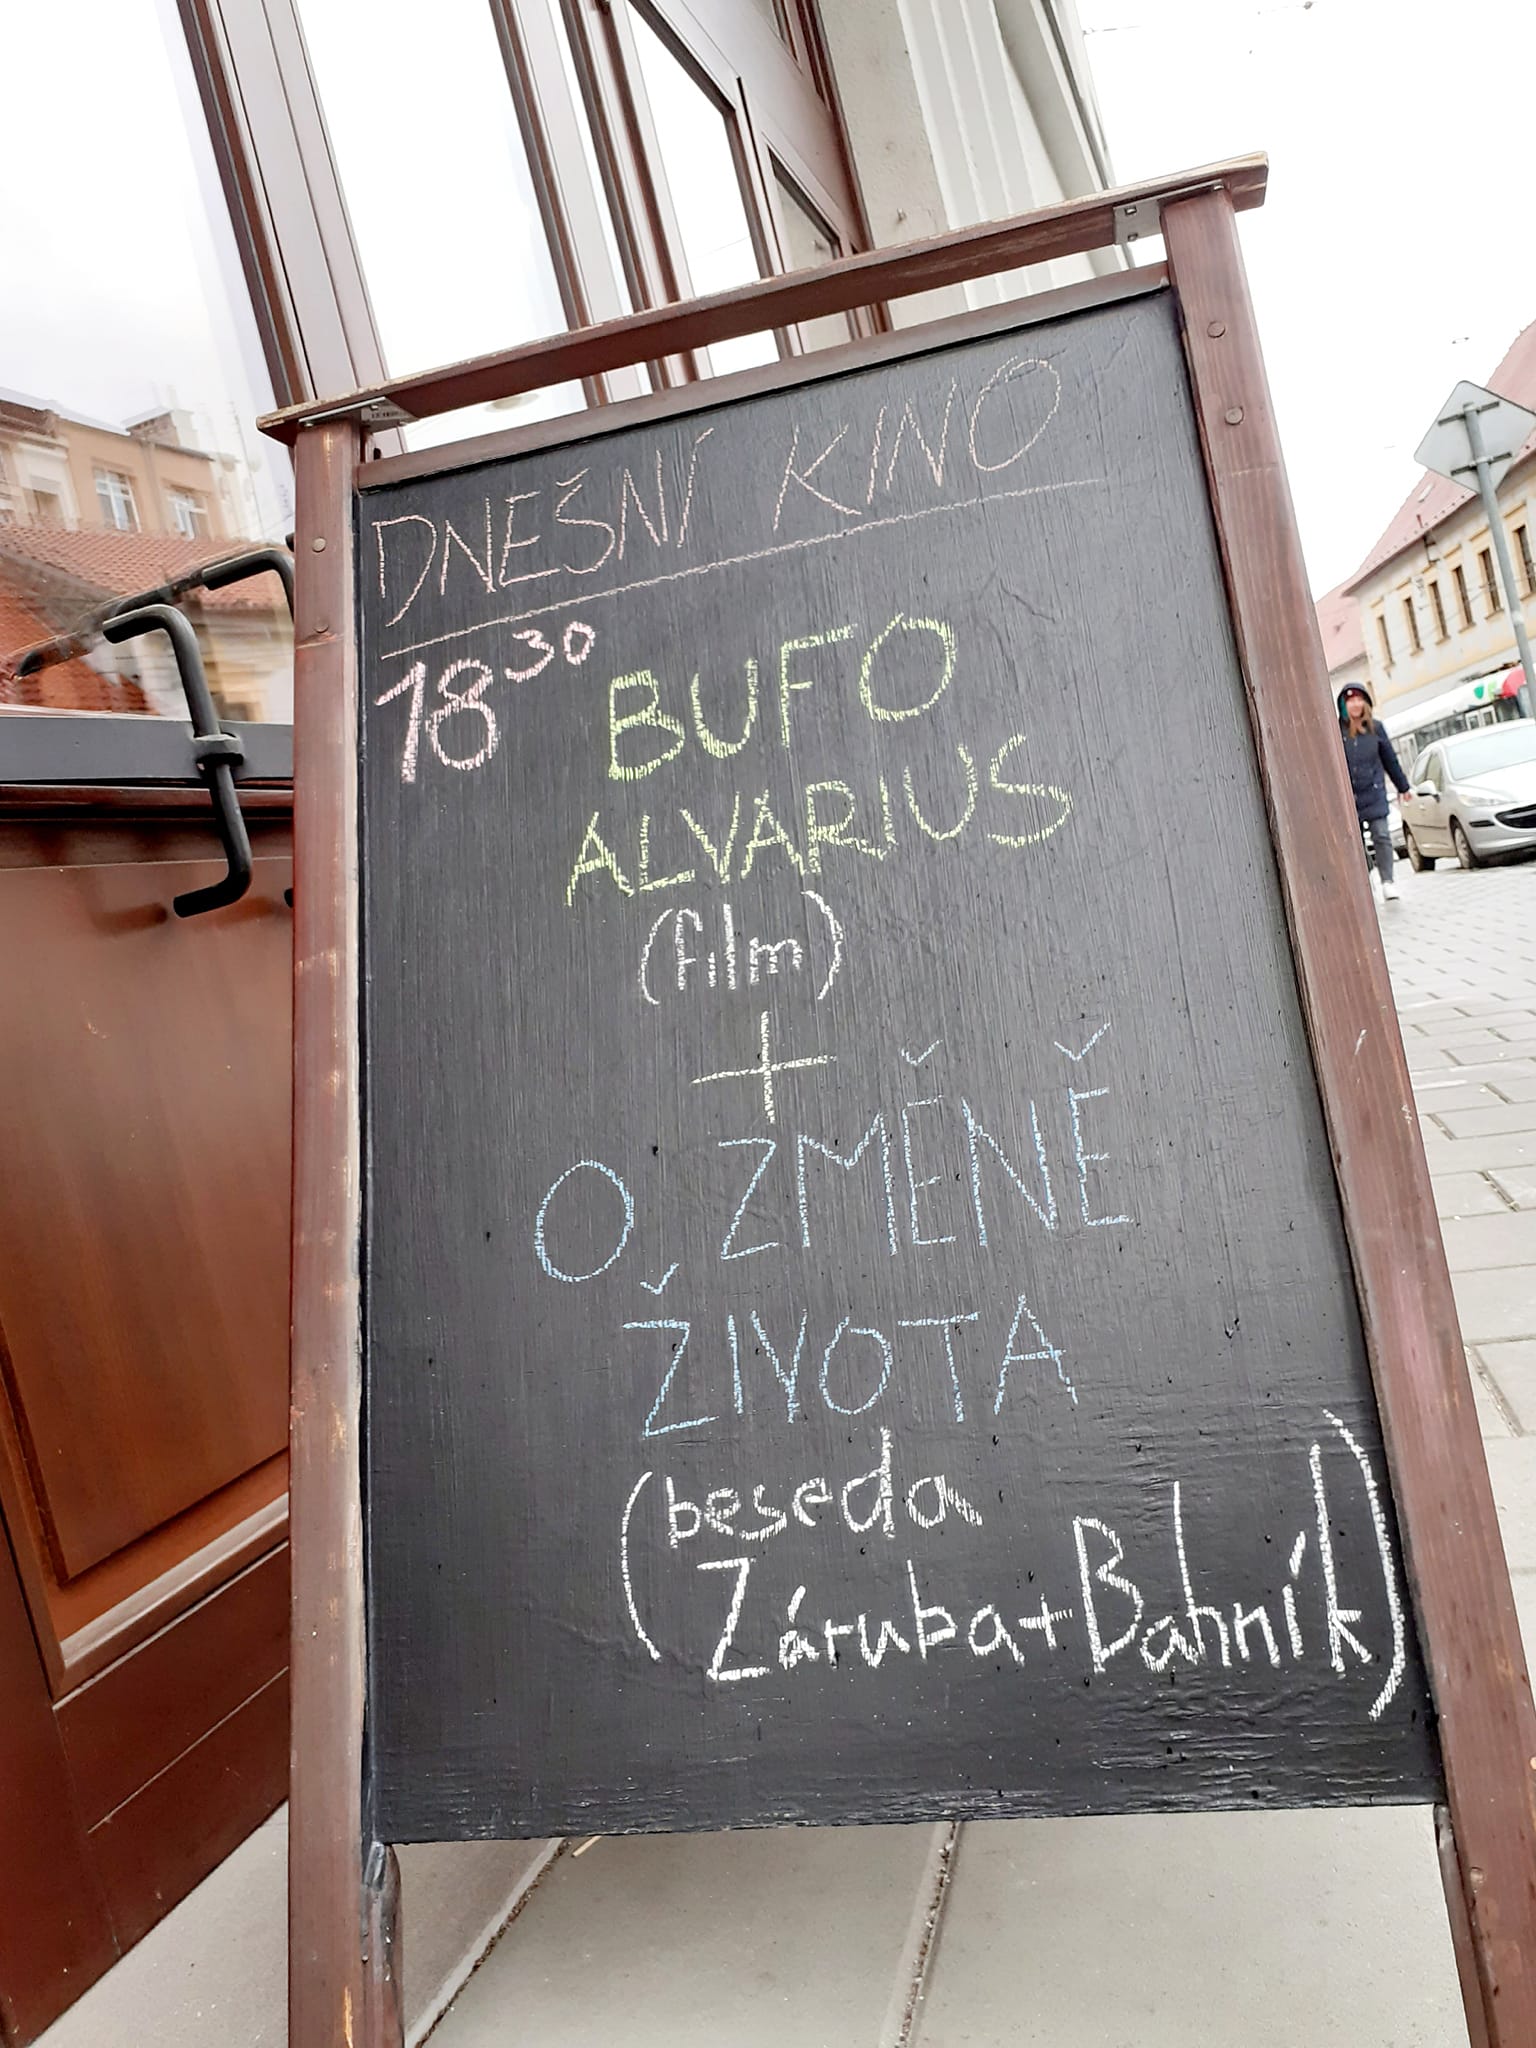 DNEŠNÍ KINO
18³⁰ BUFO
ALVARIUS
(film)
+
O ZMĚNĚ
ŽIVOTA
(beseda
Záruba + Bahník)